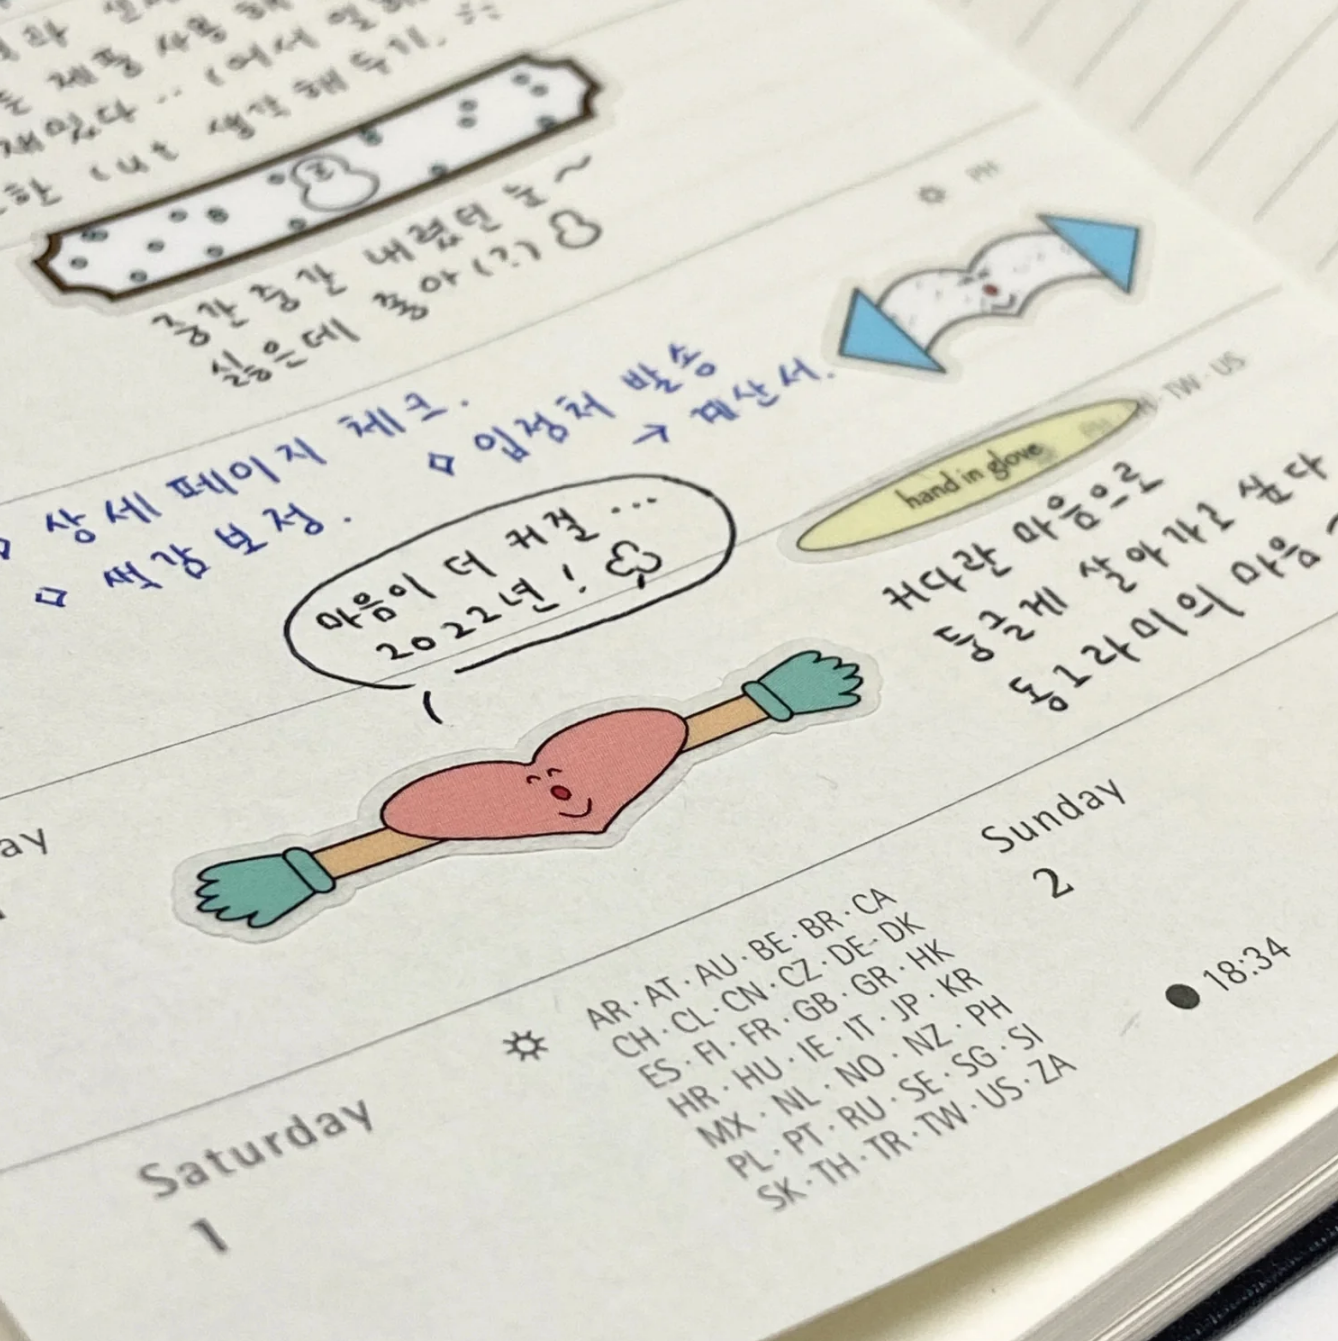 제품 사용해
재밌다... (어서
생각해두기.
중간중간 내렸던 눈~
싫은데 좋아(?)
PH
상세페이지 체크.
색감 보정.
입점처 발송
→ 계산서.
TW · US
hand in glove
커다란 마음으로
둥글게 살아가고 싶다
동그라미의 마음
마음이 더 커질...
2022년!
ay
Sunday
2
18:34
AR · AT · AU · BE · BR · CA
CH · CL · CN · CZ · DE · DK
ES · FI · FR · GB · GR · HK
HR · HU · IE · IT · JP · KR
MX · NL · NO · NZ · PH
PL · PT · RU · SE · SG · SI
SK · TH · TR · TW · US · ZA
Saturday
1